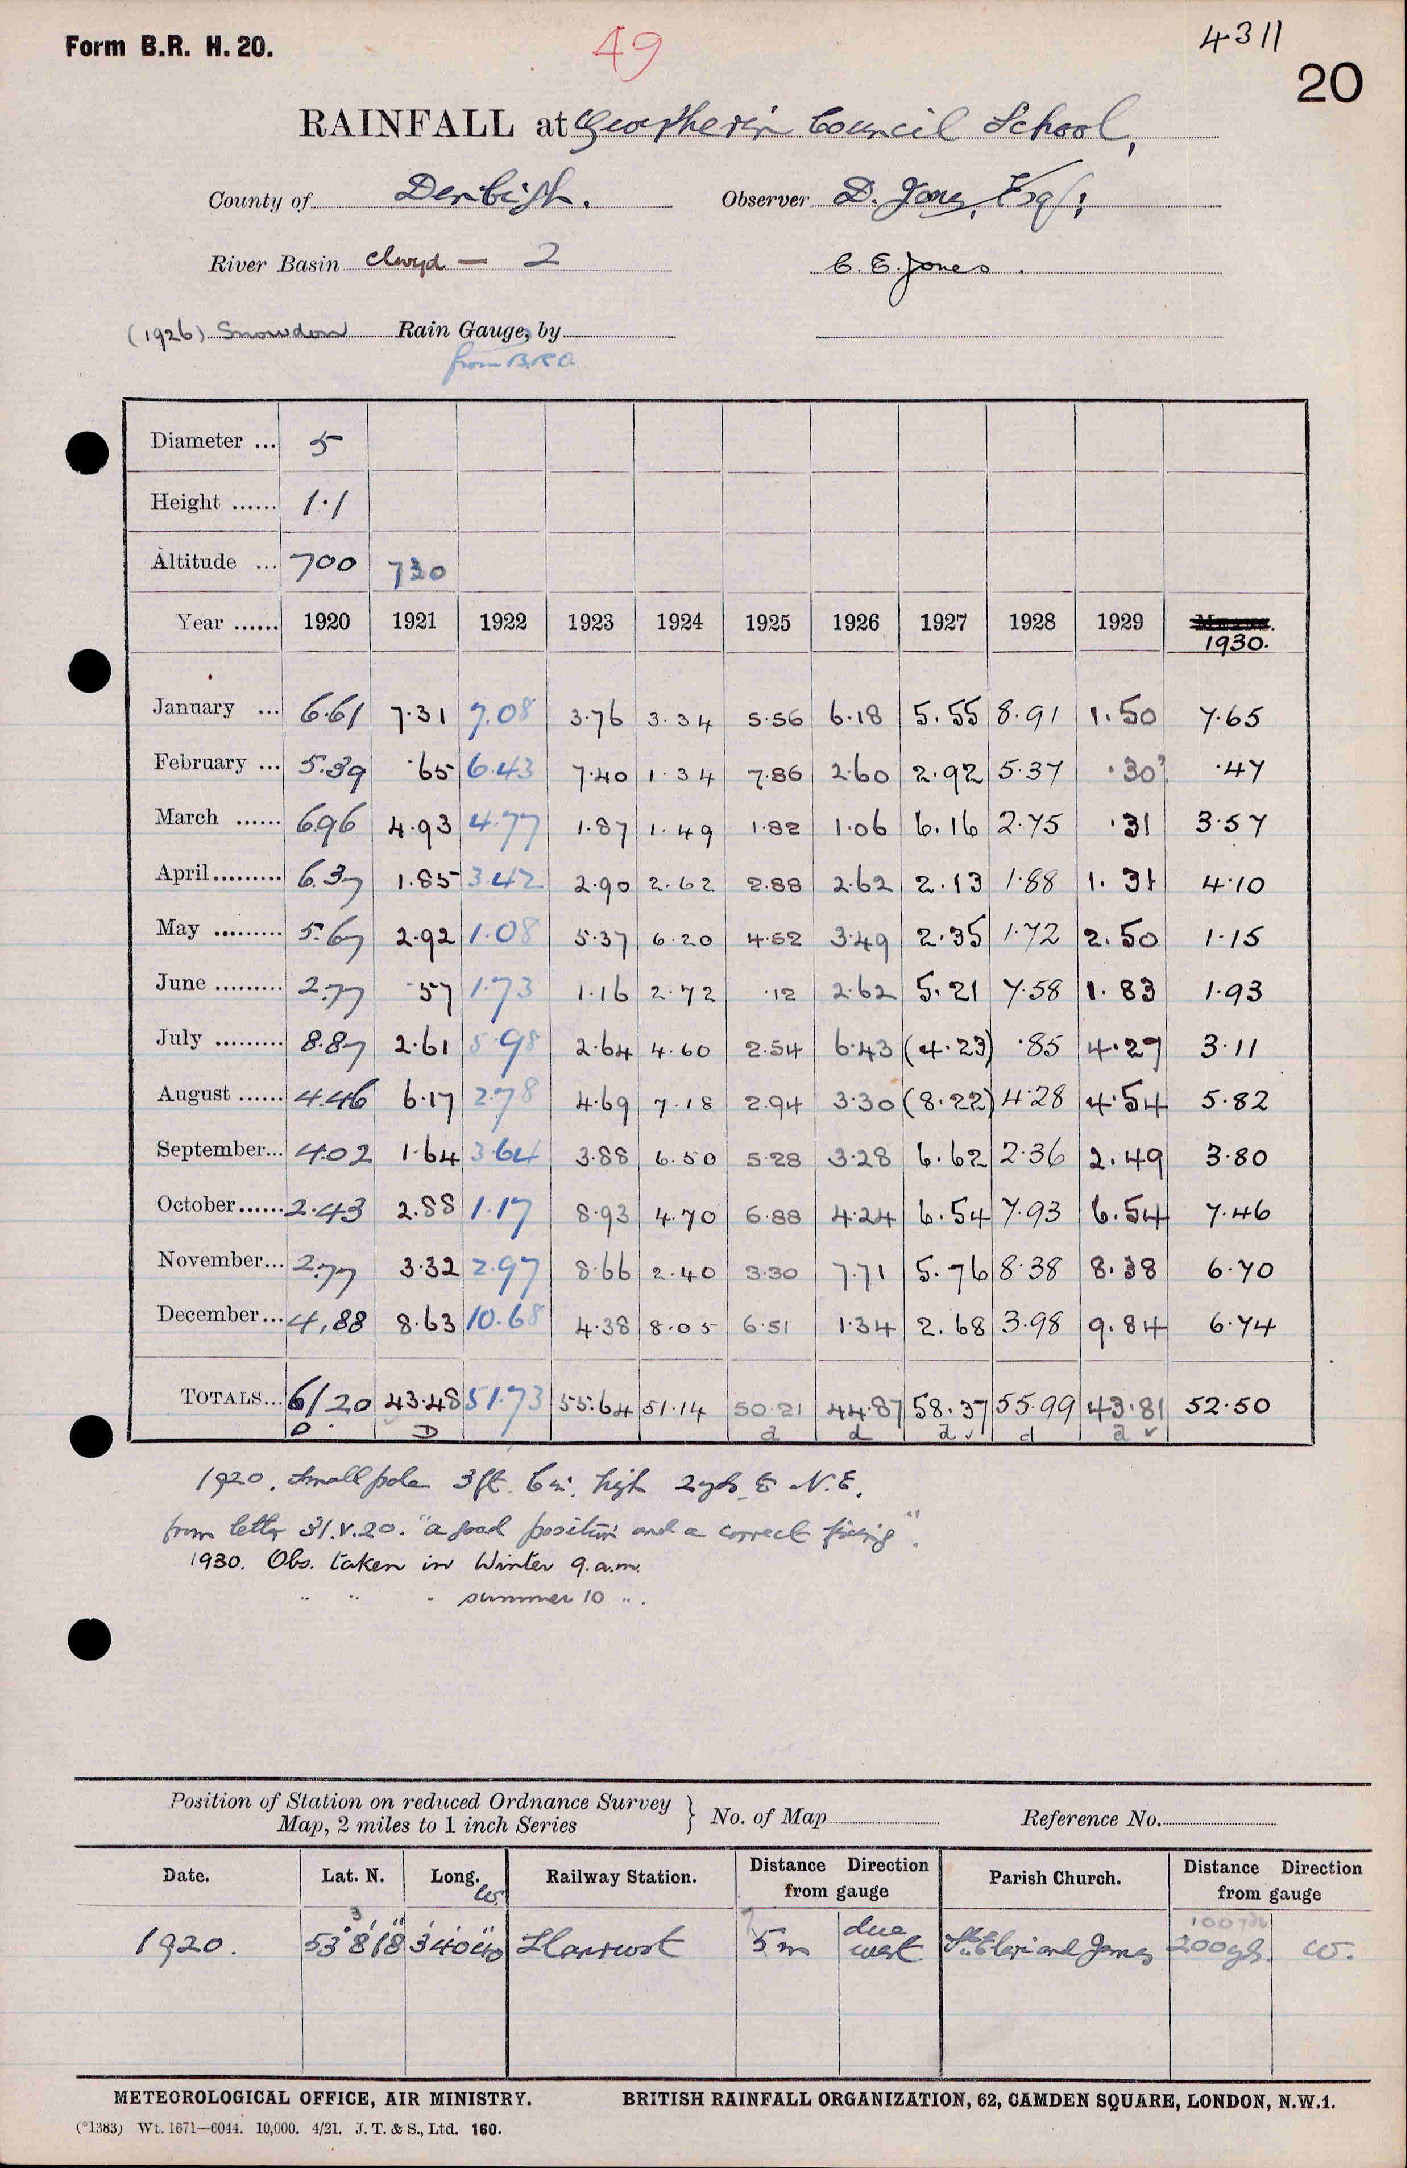 Form B.R. H. 20.
49
4311
20
RAINFALL at Gwytherin Council School,
County of Denbigh. Observer D. Jones, Esq.;
River Basin Clwyd — 2 C. E. Jones
(1926) Snowdon Rain Gauge, by
from B.R.O.
Diameter ... 5
Height ...... 1.1
Altitude ... 700 730
Year ...... 1920 1921 1922 1923 1924 1925 1926 1927 1928 1929 1930.
January ... 6.61 7.31 7.08 3.76 3.34 5.56 6.18 5.55 8.91 1.50 7.65
February ... 5.39 .65 6.43 7.40 1.34 7.86 2.60 2.92 5.37 .30? .47
March ...... 6.96 4.93 4.77 1.87 1.49 1.82 1.06 6.16 2.75 .31 3.57
April ......... 6.37 1.85 3.42 2.90 2.62 2.88 2.62 2.13 1.88 1.31 4.10
May ......... 5.67 2.92 1.08 5.37 6.20 4.52 3.49 2.35 1.72 2.50 1.15
June ......... 2.77 .57 1.73 1.16 2.72 .12 2.62 5.21 7.58 1.83 1.93
July ......... 8.87 2.61 5.98 2.64 4.60 2.54 6.43 (4.23) .85 4.27 3.11
August ...... 4.46 6.17 2.78 4.69 7.18 2.94 3.30 (8.22) 4.28 4.54 5.82
September... 4.02 1.64 3.64 3.88 6.50 5.28 3.28 6.62 2.36 2.49 3.80
October ...... 2.43 2.88 1.17 8.93 4.70 6.88 4.24 6.54 7.93 6.54 7.46
November... 2.77 3.32 2.97 8.66 2.40 3.30 7.71 5.76 8.38 8.38 6.70
December... 4.88 8.63 10.68 4.38 8.05 6.51 1.34 2.68 3.98 9.84 6.74
TOTALS... 61.20 43.48 51.73 55.64 51.14 50.21 44.87 58.37 55.99 43.81 52.50
D D d d d ✓ d d ✓
1920. Small pole 3ft. 6in. high 2yds E N.E.
from letter 31.V.20. "a good position and a correct fixing".
1930. Obs. taken in Winter 9.a.m.
" " " summer 10 ".
Position of Station on reduced Ordnance Survey
Map, 2 miles to 1 inch Series } No. of Map Reference No.
Date. Lat. N. Long. W Railway Station. Distance Direction from gauge Parish Church. Distance Direction from gauge
3 100 yds
1920. 53° 8' 18" 3° 40' 40" Llanrwst 5m due west and James 200yds. W.
METEOROLOGICAL OFFICE, AIR MINISTRY. BRITISH RAINFALL ORGANIZATION, 62, CAMDEN SQUARE, LONDON, N.W.1.
(*1383) Wt. 1671—6044. 10,000. 4/21. J. T. & S., Ltd. 160.